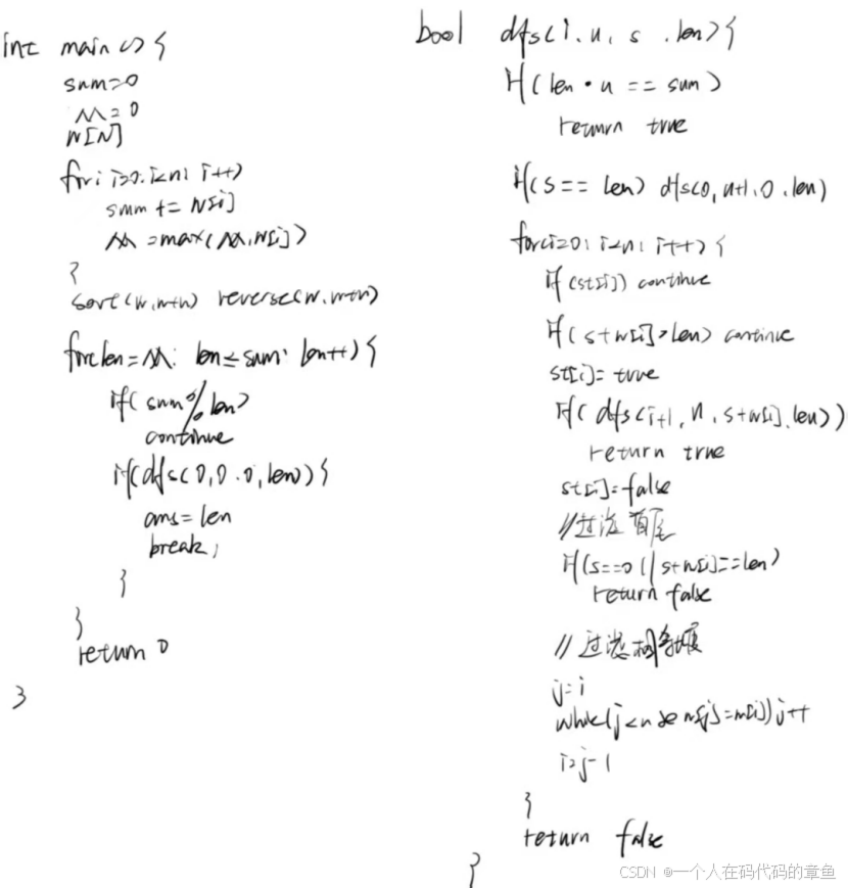 int main() {
sum=0
M=0
W[N]
for(i=0;i<n;i++)
sum += W[i]
M=max(M,W[i])
}
sort(w,w+n) reverse(w,w+n)
for(len=M; len≤sum; len++){
if(sum%len)
continue
if(dfs(0,0,0,len)){
ans=len
break;
}
}
return 0
}
bool dfs(i,u,s,len){
if(len·u == sum)
return true
if(s==len) dfs(0,u+1,0,len)
for(i=0;i<n;i++){
if(st[i]) continue
if(s+w[i]>len) continue
st[i]=true
if(dfs(i+1,u,s+w[i],len))
return true
st[i]=false
//过滤首尾
if(s==0||s+w[i]==len)
return false
//过滤相
j=i
while(j<n && w[j]=w[i])j++
i=j-1
}
return false
}
CSDN @一个人在码代码的章鱼